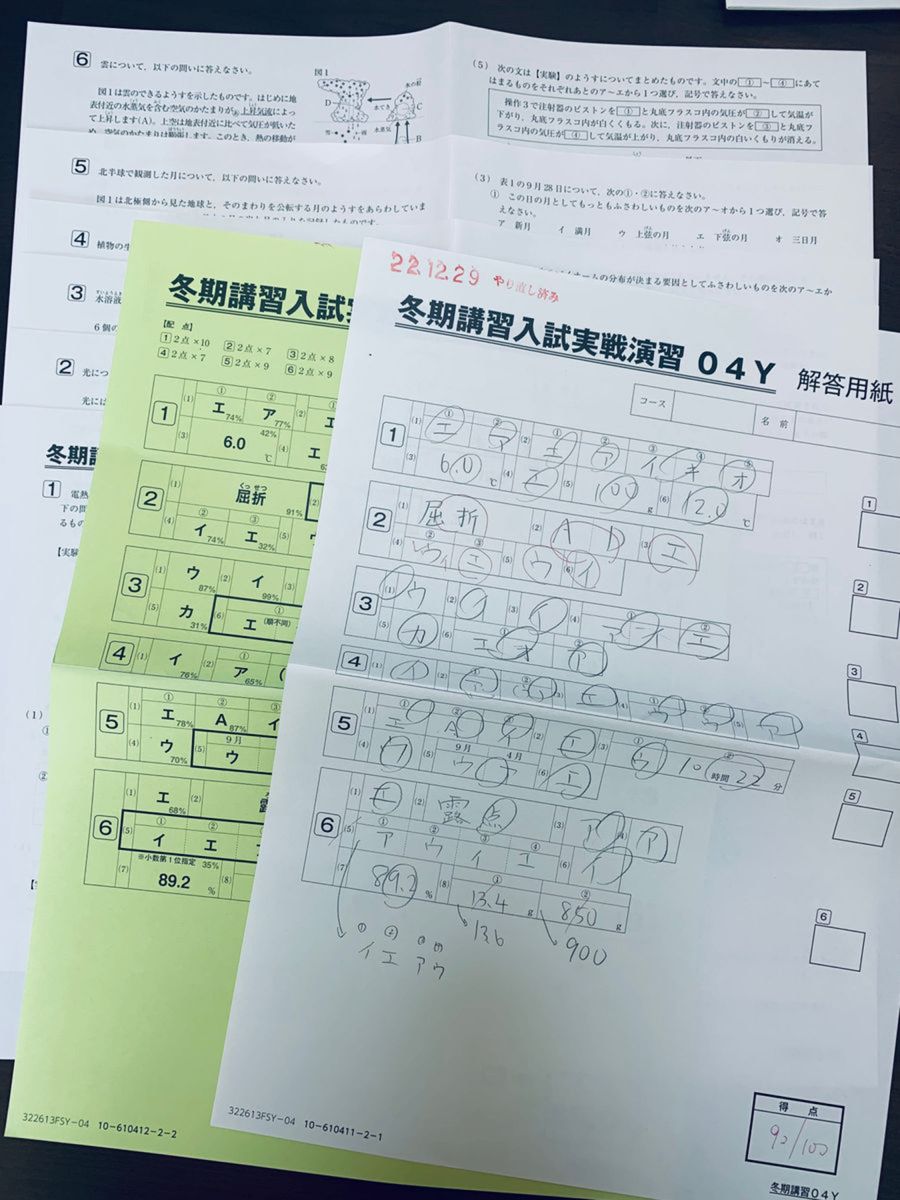 6 雲について，以下の問いに答えなさい。
図1は雲のできるようすを示したものです。はじめに地
表付近の水蒸気を含む空気のかたまりが上昇気流によっ
て上昇します(A)。上空は地表付近に比べて気圧が低いた
め，空気のかたまりは膨張します。このとき，熱の移動が
図1
D
C
B
水蒸気
(5) 次の文は【実験】のようすについてまとめたものです。文中の①～④にあて
はまるものをそれぞれあとのア～エから1つ選び，記号で答えなさい。
操作3で注射器のピストンを①と丸底フラスコ内の気圧が②して気温が
下がり，丸底フラスコ内が白くくもる。次に，注射器のピストンを③と丸底フ
ラスコ内の気圧が④して気温が上がり，丸底フラスコ内の白いくもりが消える。
5 北半球で観測した月について，以下の問いに答えなさい。
図1は北極側から見た地球と，そのまわりを公転する月のようすをあらわしていま
(3) 表1の9月28日について，次の①・②に答えなさい。
① この日の月としてもっともふさわしいものを次のア～オから1つ選び，記号で答
えなさい。
ア 新月 イ 満月 ウ 上弦の月 エ 下弦の月 オ 三日月
4 植物の生
の分布が決まる要因としてふさわしいものを次のア～エか
3 水溶液
6個の
2 光につ
光には
冬期講
1 電熱
下の問
るもの
【実験
(1)
冬期講習入試実
【配 点】
1 2点×10 2 2点×7 3 2点×8
4 2点×7 5 2点×9 6 2点×9
1 (1) ① エ 74% ② ア 77% (2) エ
(3) 6.0 ℃ 42% (4) エ
2 (1) 屈折 くっせつ 91% (2)
(4) ② イ 74% ③ エ 32% (5) ウ
3 (1) ウ 87% (2) イ 99% (3)
(5) カ 31% (6) ① エ (順不同)
4 (1) イ 76% (2) ① ア 65%
5 (1) ① エ 78% ② A 87% イ
(4) ウ 70% (5) 9月 ウ
6 (1) エ 68% (2) 露
(5) ① イ ② エ
※小数第1位指定 35%
(7) 89.2 % (8)
322613FSY-04 10-610412-2-2
22.12.29 やり直し済み
冬期講習入試実戦演習 04Y 解答用紙
コース 名前
1 (1) ① エ ② ア (2) ① エ ② ア ③ イ ④ キ ⑤ オ
(3) 6.0 ℃ (4) エ (5) 100 g (6) 12.0 ℃
2 (1) 屈折 (2) A D (3) エ
(4) ウ イ ③ エ (5) ウ (6) イ
3 (1) ウ (2) イ (3) イ (4) ① ア オ ② エ
(5) カ (6) エ オ ② ア
4 (1) イ (2) ① ア
5 (1) エ A (2) エ (3) ① ウ ② 10 時間 22 分
(4) ウ (5) 9月 ウ 4月 (6) エ
6 (1) エ (2) 露点 (3) ア (4) ア
(5) ① ア ② ウ ③ イ ④ エ (6) イ
(7) 89.2 % (8) ① 13.4 g ② 850 g
136
900
イ エ ア ウ
1
2
3
4
5
6
得 点
90/100
322613FSY-04 10-610411-2-1
冬期講習04Y